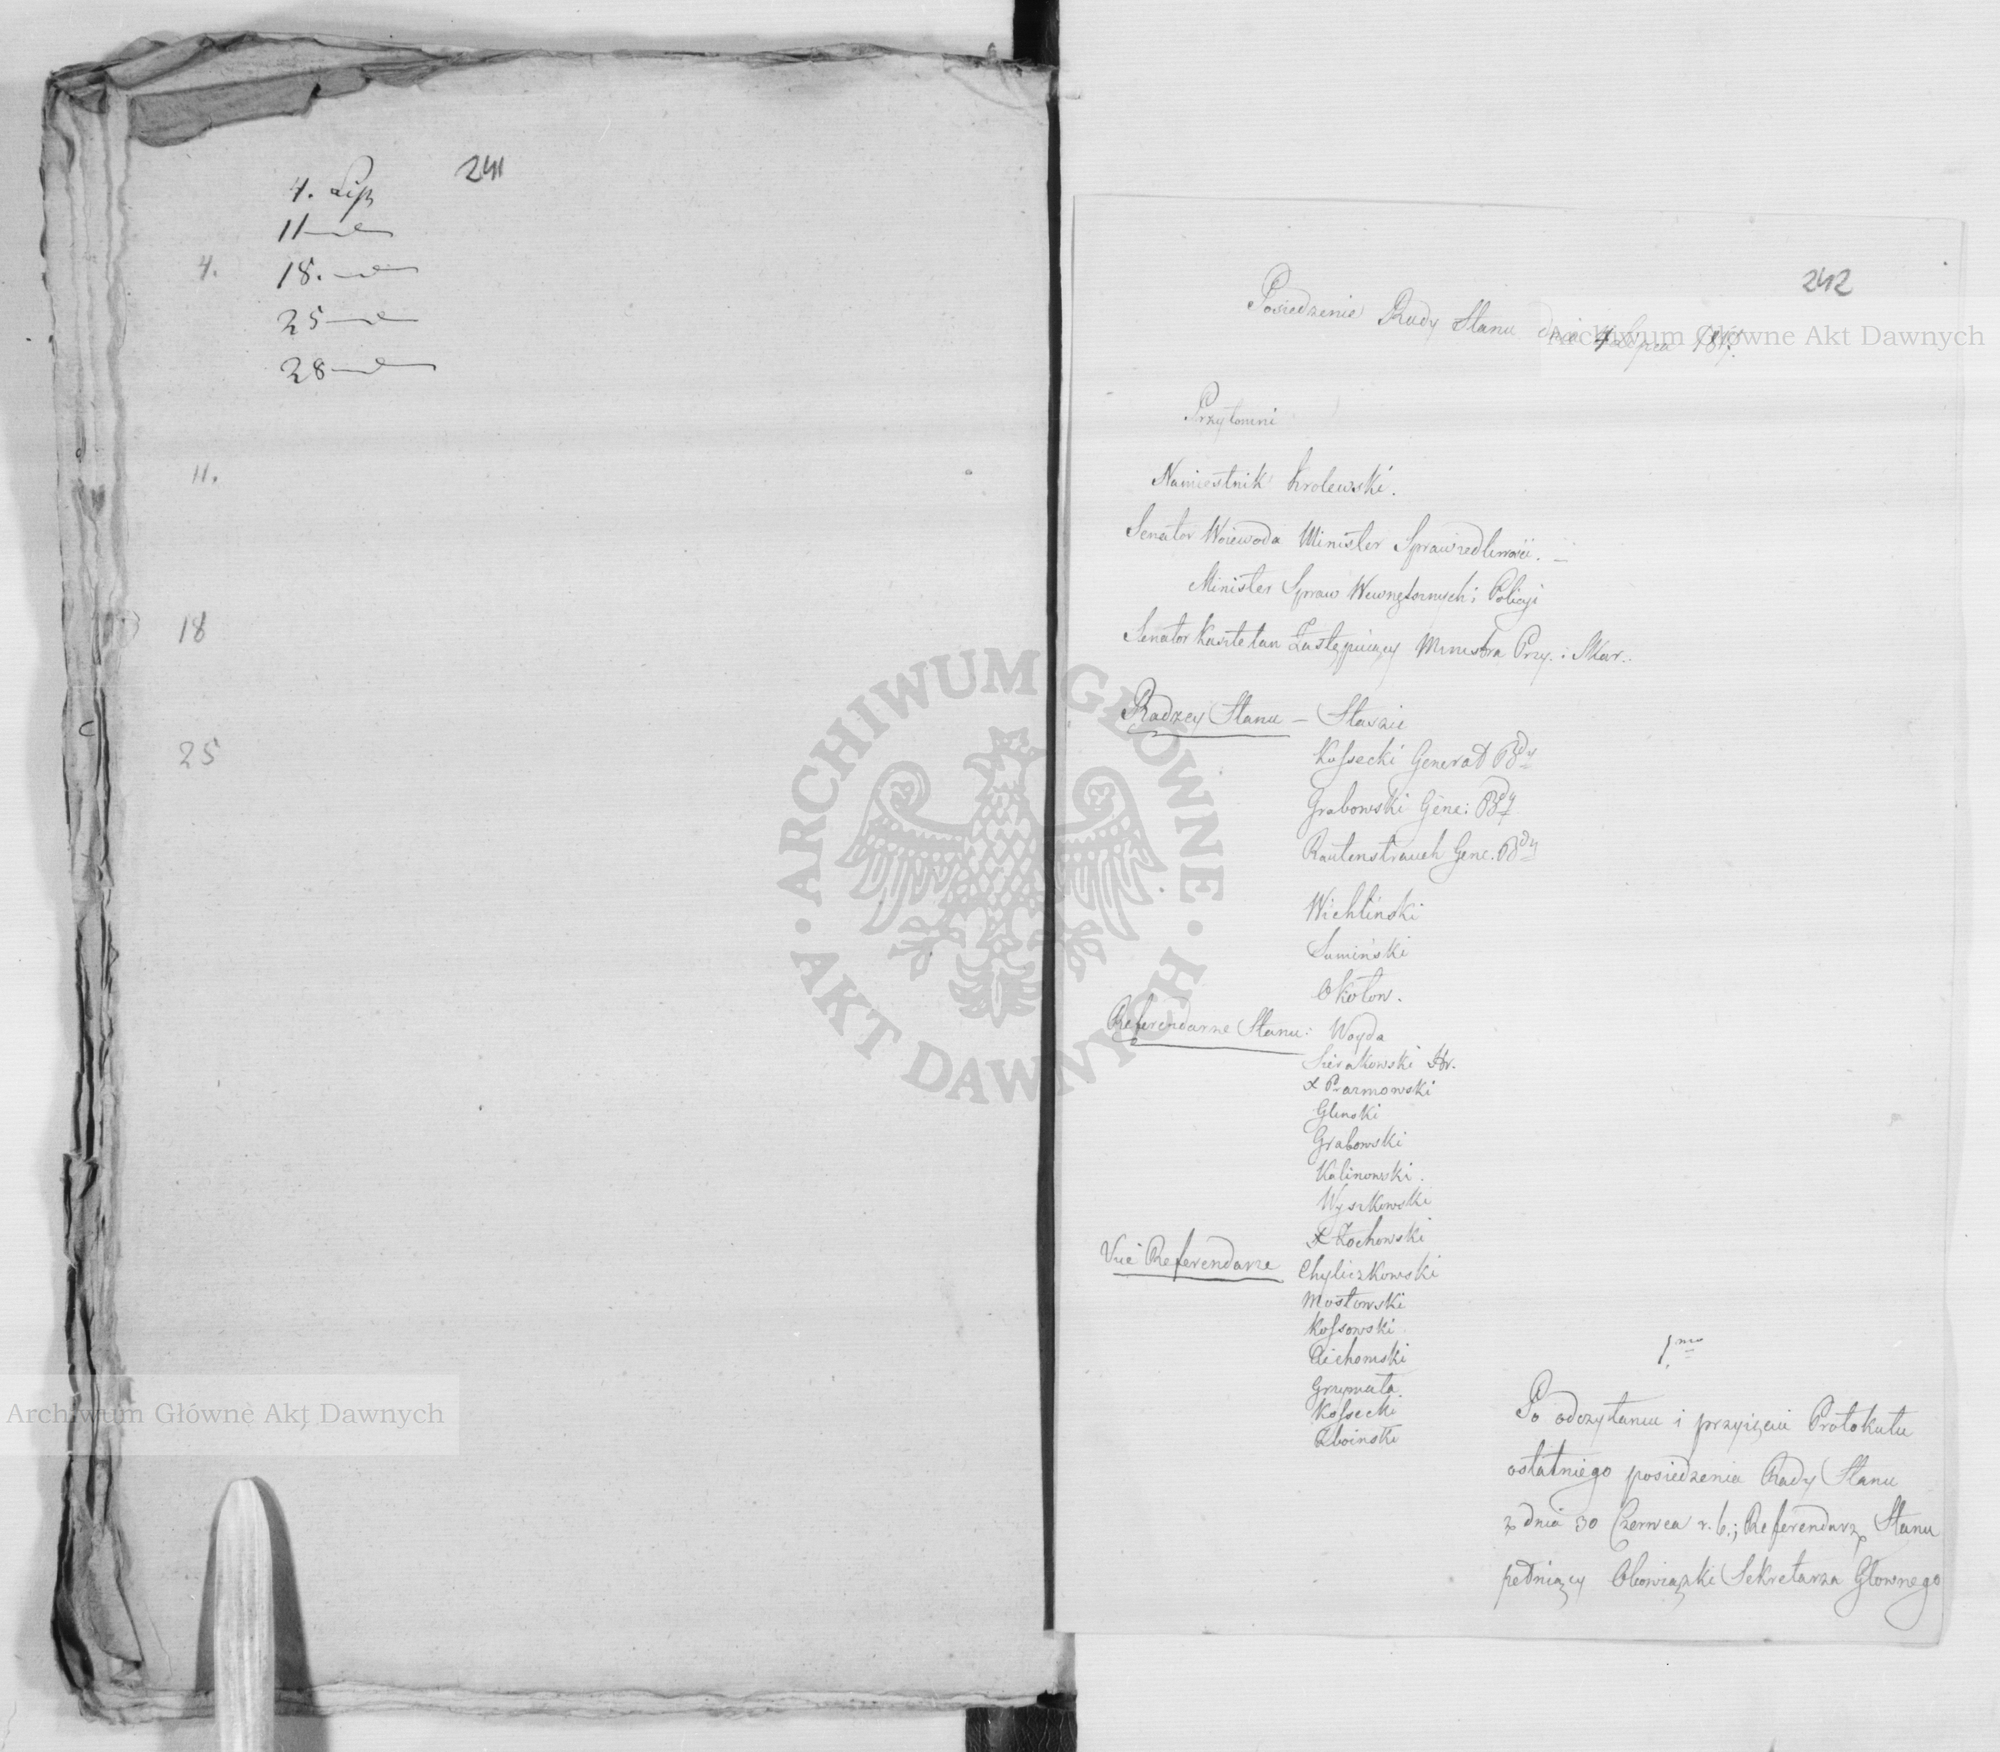 241
4. Lip
11
18.
25
28
4.
11.
18
25
242
Posiedzenie Rady Stanu dnia 4 Lipca
Przytomni
Namiestnik Krolewski.
Senator Woiewoda Minister Sprawiedliwości.
Minister Spraw Wewnętrznych i Policyi
Senator Kasztelan Zastępuiący Ministra Przy. i Skar.
Radzcy Stanu – Staszic
Kossecki Generał Bdy
Grabowski Gene: Bdy
Rautenstrauch Gene. Bdy
Wichliński
Sumiński
Okołow.
Referendarze Stanu: Woyda
Sierakowski Hr.
X Prazmowski
Glinski
Grabowski
Kalinowski.
Wyszkowski
X Żochowski
Vice Referendarze Chyliczkowski
Mostowski
Kossowski
Cichomski
Grzymała
Kossecki
Zboinski
1mo
Po odczytaniu i przyięciu Protokułu
ostatniego posiedzenia Rady Stanu
z dnia 30 Czerwca r. b.; Referendarz Stanu
pełniący Obowiązki Sekretarza Głownego
Archiwum Główne Akt Dawnych
Archiwum Główne Akt Dawnych
ARCHIWUM GŁÓWNE · AKT DAWNYCH ·